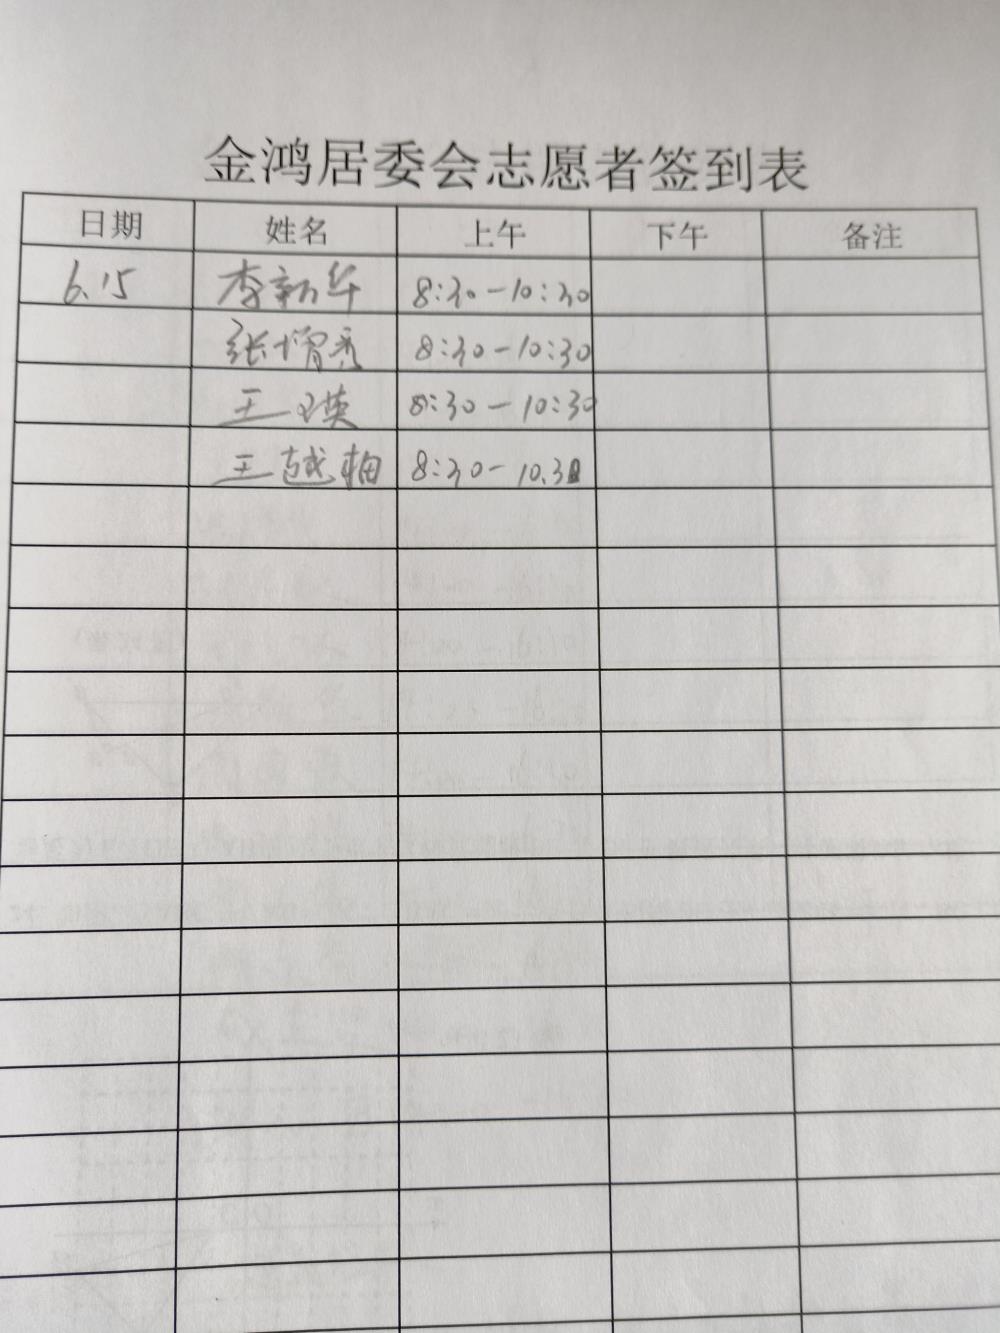 金鸿居委会志愿者签到表
日期 姓名 上午 下午 备注
6.15 李新华 8:30-10:30
张增秀 8:30-10:30
王 英 8:30-10:30
王越梅 8:30-10.30